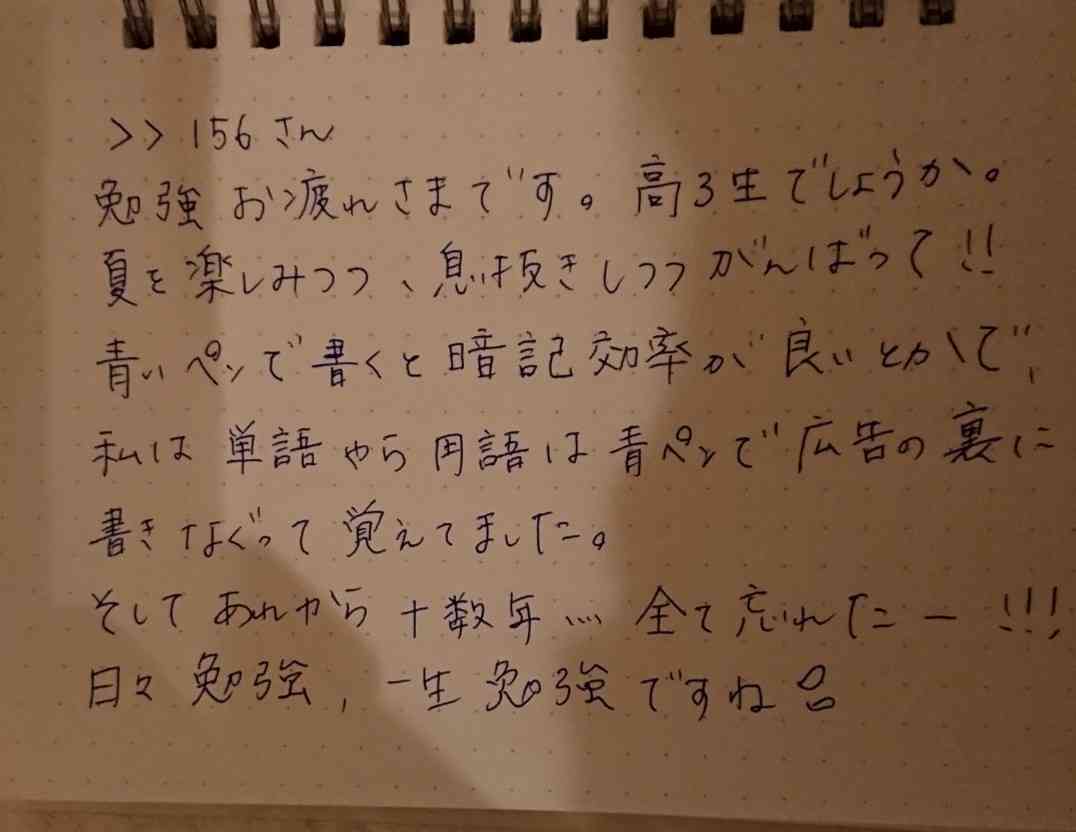 >>156さん
勉強お疲れさまです。高3生でしょうか。
夏を楽しみつつ、息抜きしつつがんばって!!
青いペンで書くと暗記効率が良いとかで、
私は単語やら用語は青ペンで広告の裏に
書きなぐって覚えてました。
そしてあれから十数年…全て忘れたー!!!
日々勉強、一生勉強ですね